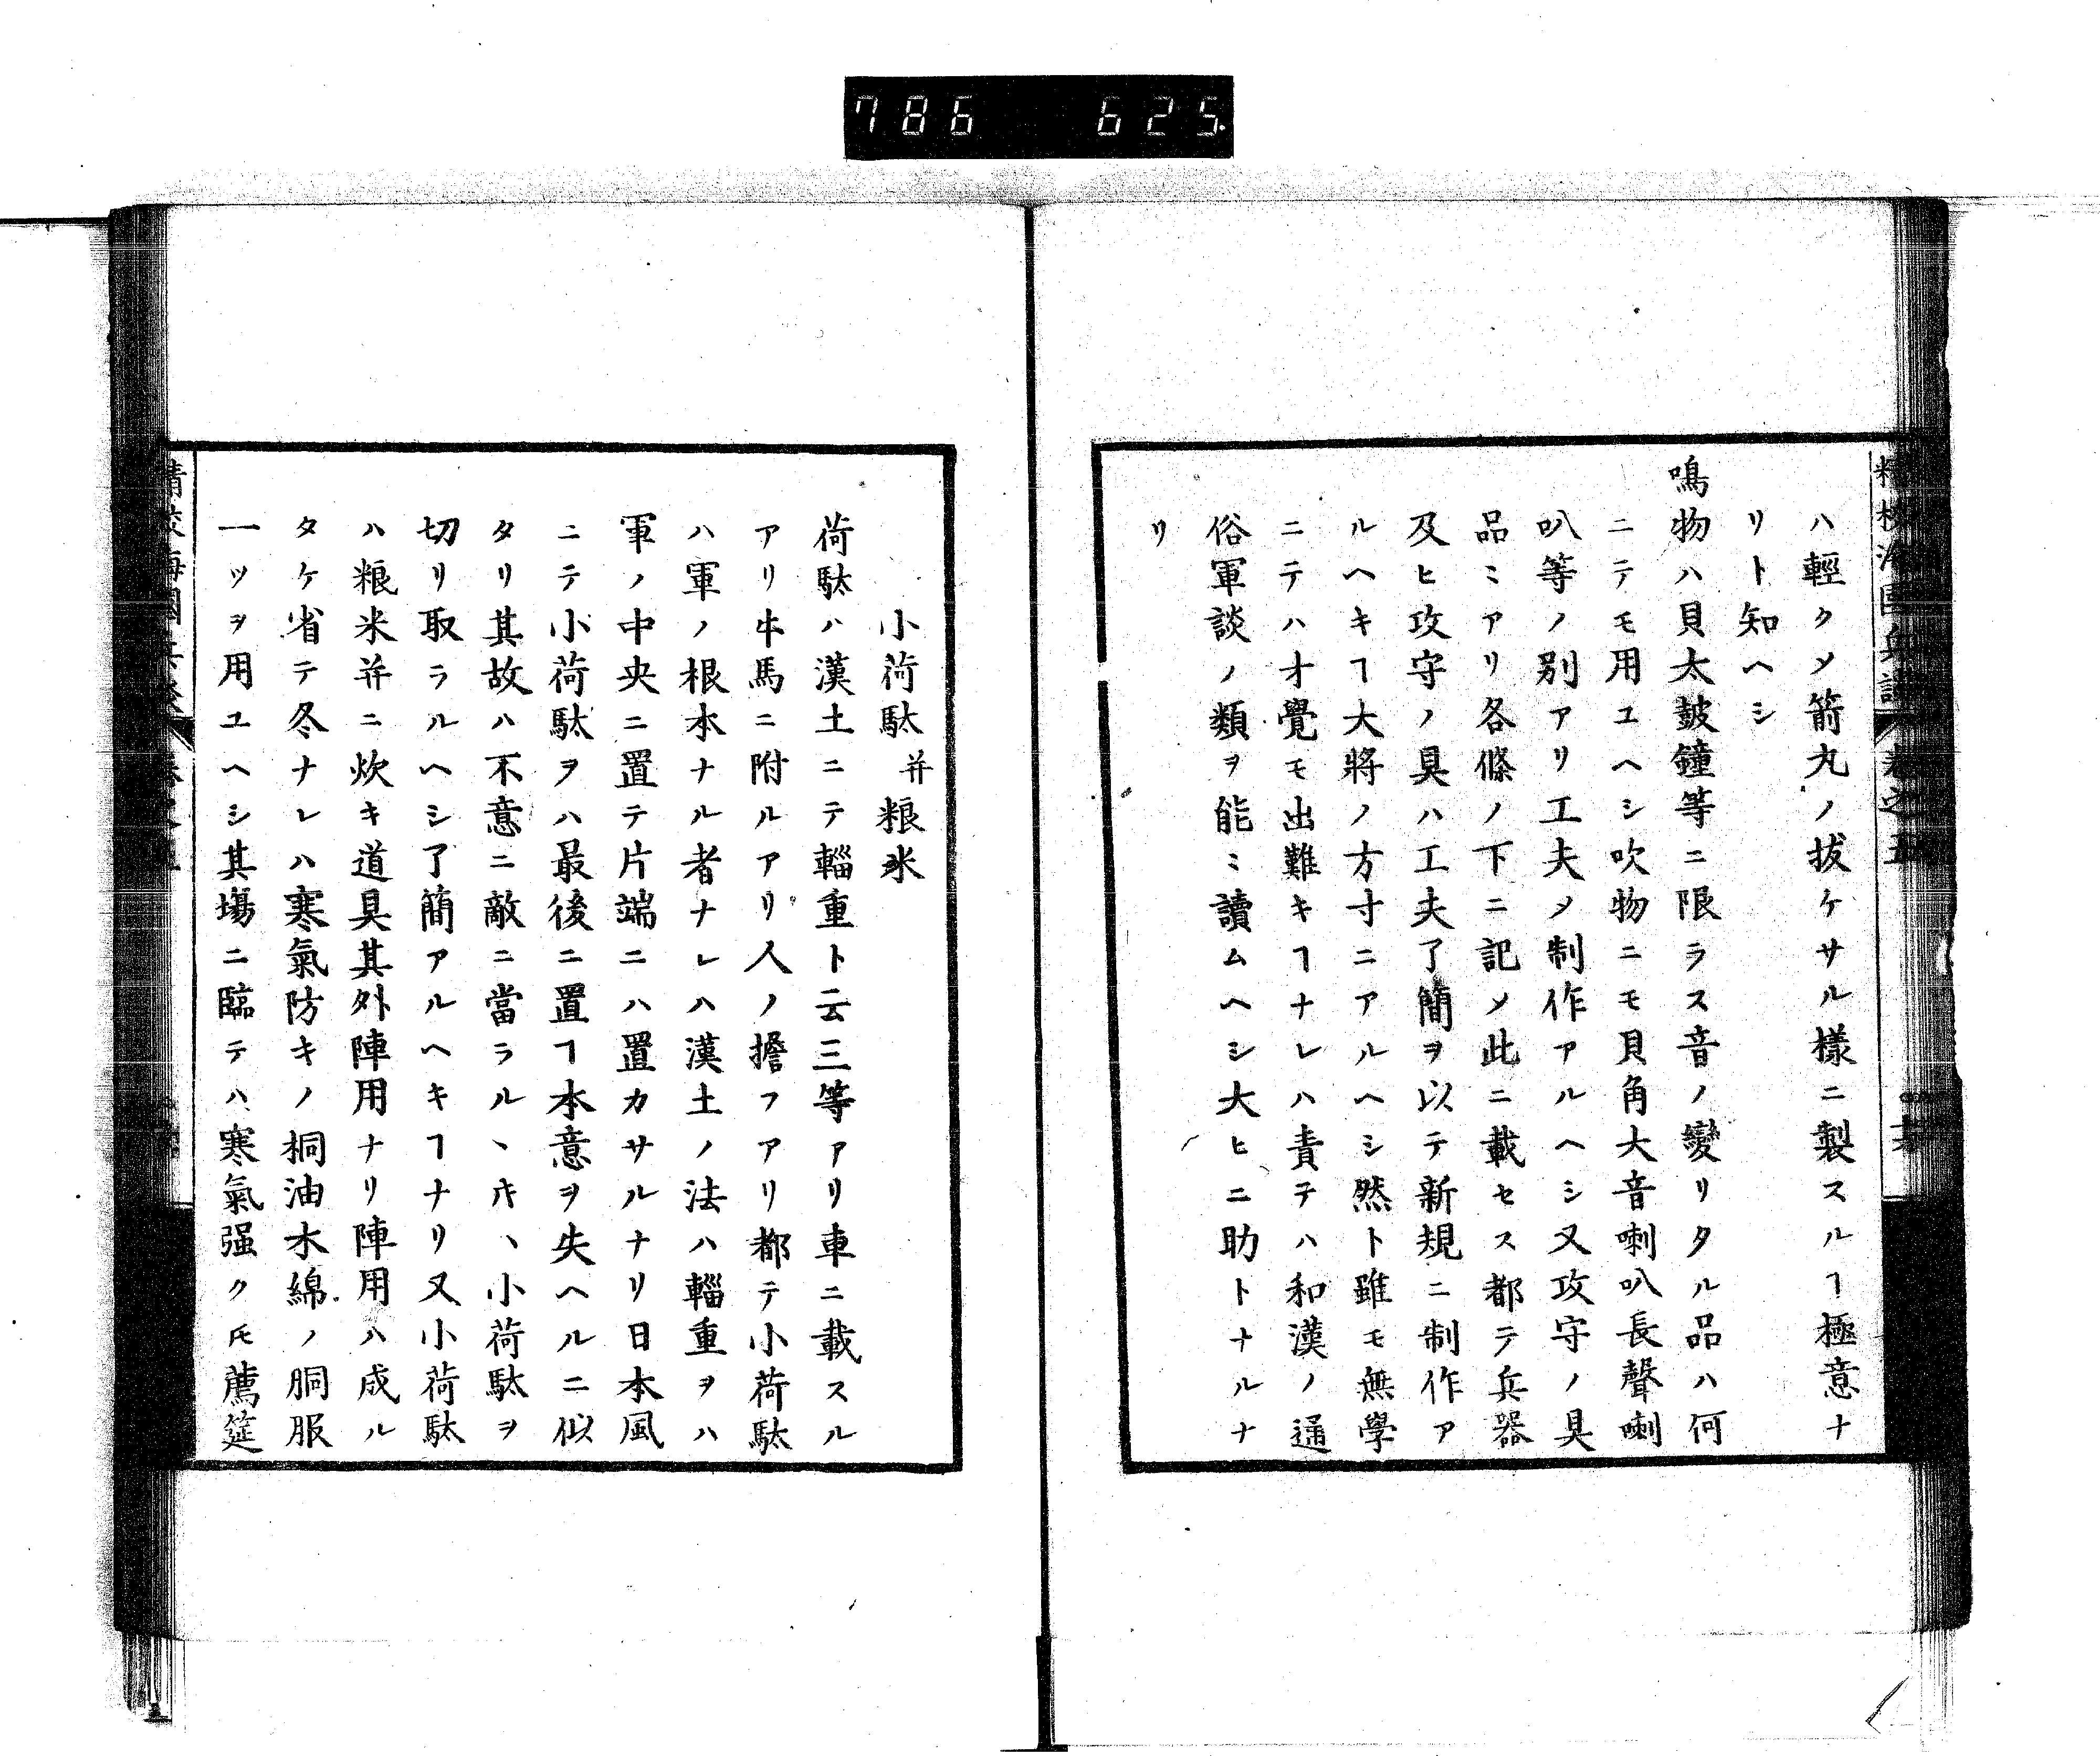 786 625
精校海國兵談 卷之五
ハ輕クメ箭丸ノ拔ケサル樣ニ製スルヿ極意ナ
リト知ヘシ
鳴物ハ貝太鼓鐘等ニ限ラス音ノ變リタル品ハ何
ニテモ用ユヘシ吹物ニモ貝角大音喇叭長聲喇
叭等ノ別アリ工夫メ制作アルヘシ又攻守ノ具
品ミアリ各條ノ下ニ記メ此ニ載セス都テ兵器
及ヒ攻守ノ具ハ工夫了簡ヲ以テ新規ニ制作ア
ルヘキヿ大將ノ方寸ニアルヘシ然ト雖モ無學
ニテハオ覺モ出難キヿナレハ責テハ和漢ノ通
俗軍談ノ類ヲ能ミ讀ムヘシ大ヒニ助トナルナ
リ
小荷駄并粮米
荷駄ハ漢土ニテ輜重ト云三等アリ車ニ載スル
アリ牛馬ニ附ルアリ人ノ擔フアリ都テ小荷駄
ハ軍ノ根本ナル者ナレハ漢土ノ法ハ輜重ヲハ
軍ノ中央ニ置テ片端ニハ置カサルナリ日本風
ニテ小荷駄ヲハ最後ニ置ヿ本意ヲ失ヘルニ似
タリ其故ハ不意ニ敵ニ當ラルヽ𪜈ヽ小荷駄ヲ
切リ取ラルヘシ了簡アルヘキヿナリ又小荷駄
ハ粮米并ニ炊キ道具其外陣用ナリ陣用ハ成ル
タケ省テ冬ナレハ寒氣防キノ桐油木綿ノ胴服
一ツヲ用ユヘシ其塲ニ臨テハ寒氣强ク𪜈薦筵
精校海國兵談 卷之五